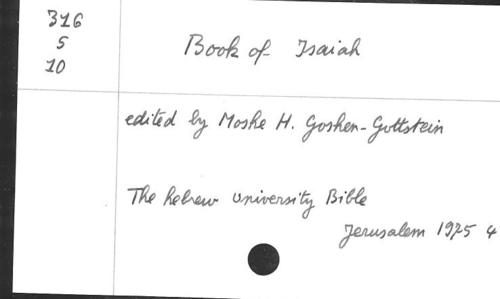 316
5
10
Book of Isaiah
edited by Moshe H. Goshen-Gottstein
The hebrew University Bible
Jerusalem 1975 4